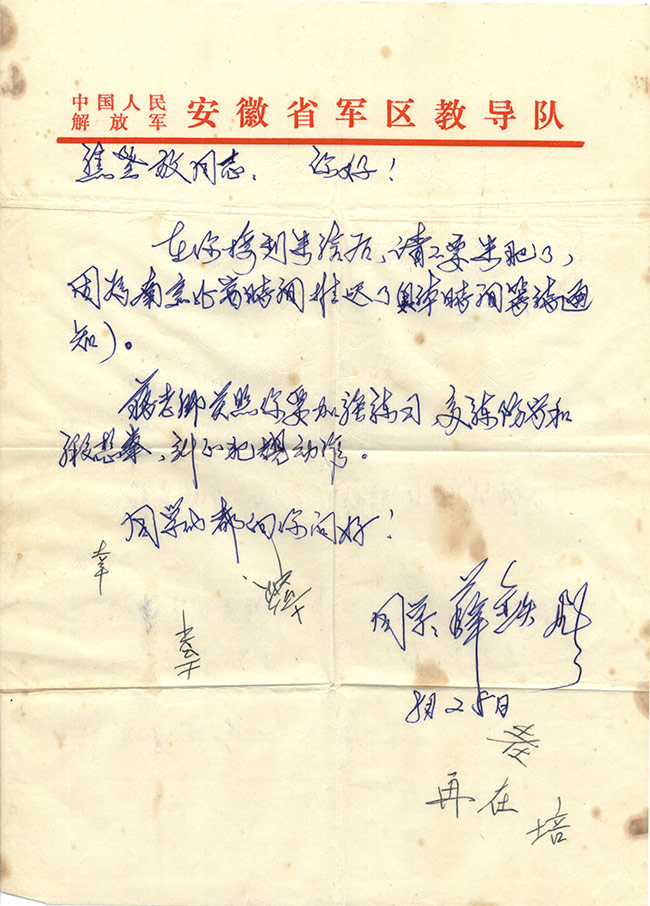 中国人民
解放军
安徽省军区教导队
焦警放同志：你好！
在你接到来信后，请不要来肥了，
因为南京比赛时间推迟了(具体时间等待通
知)。
蒋老师关照你要加强练习，多练防守和
，纠正犯规动作。
同学们都向你问好！
同学：薛
月25日
再在
培